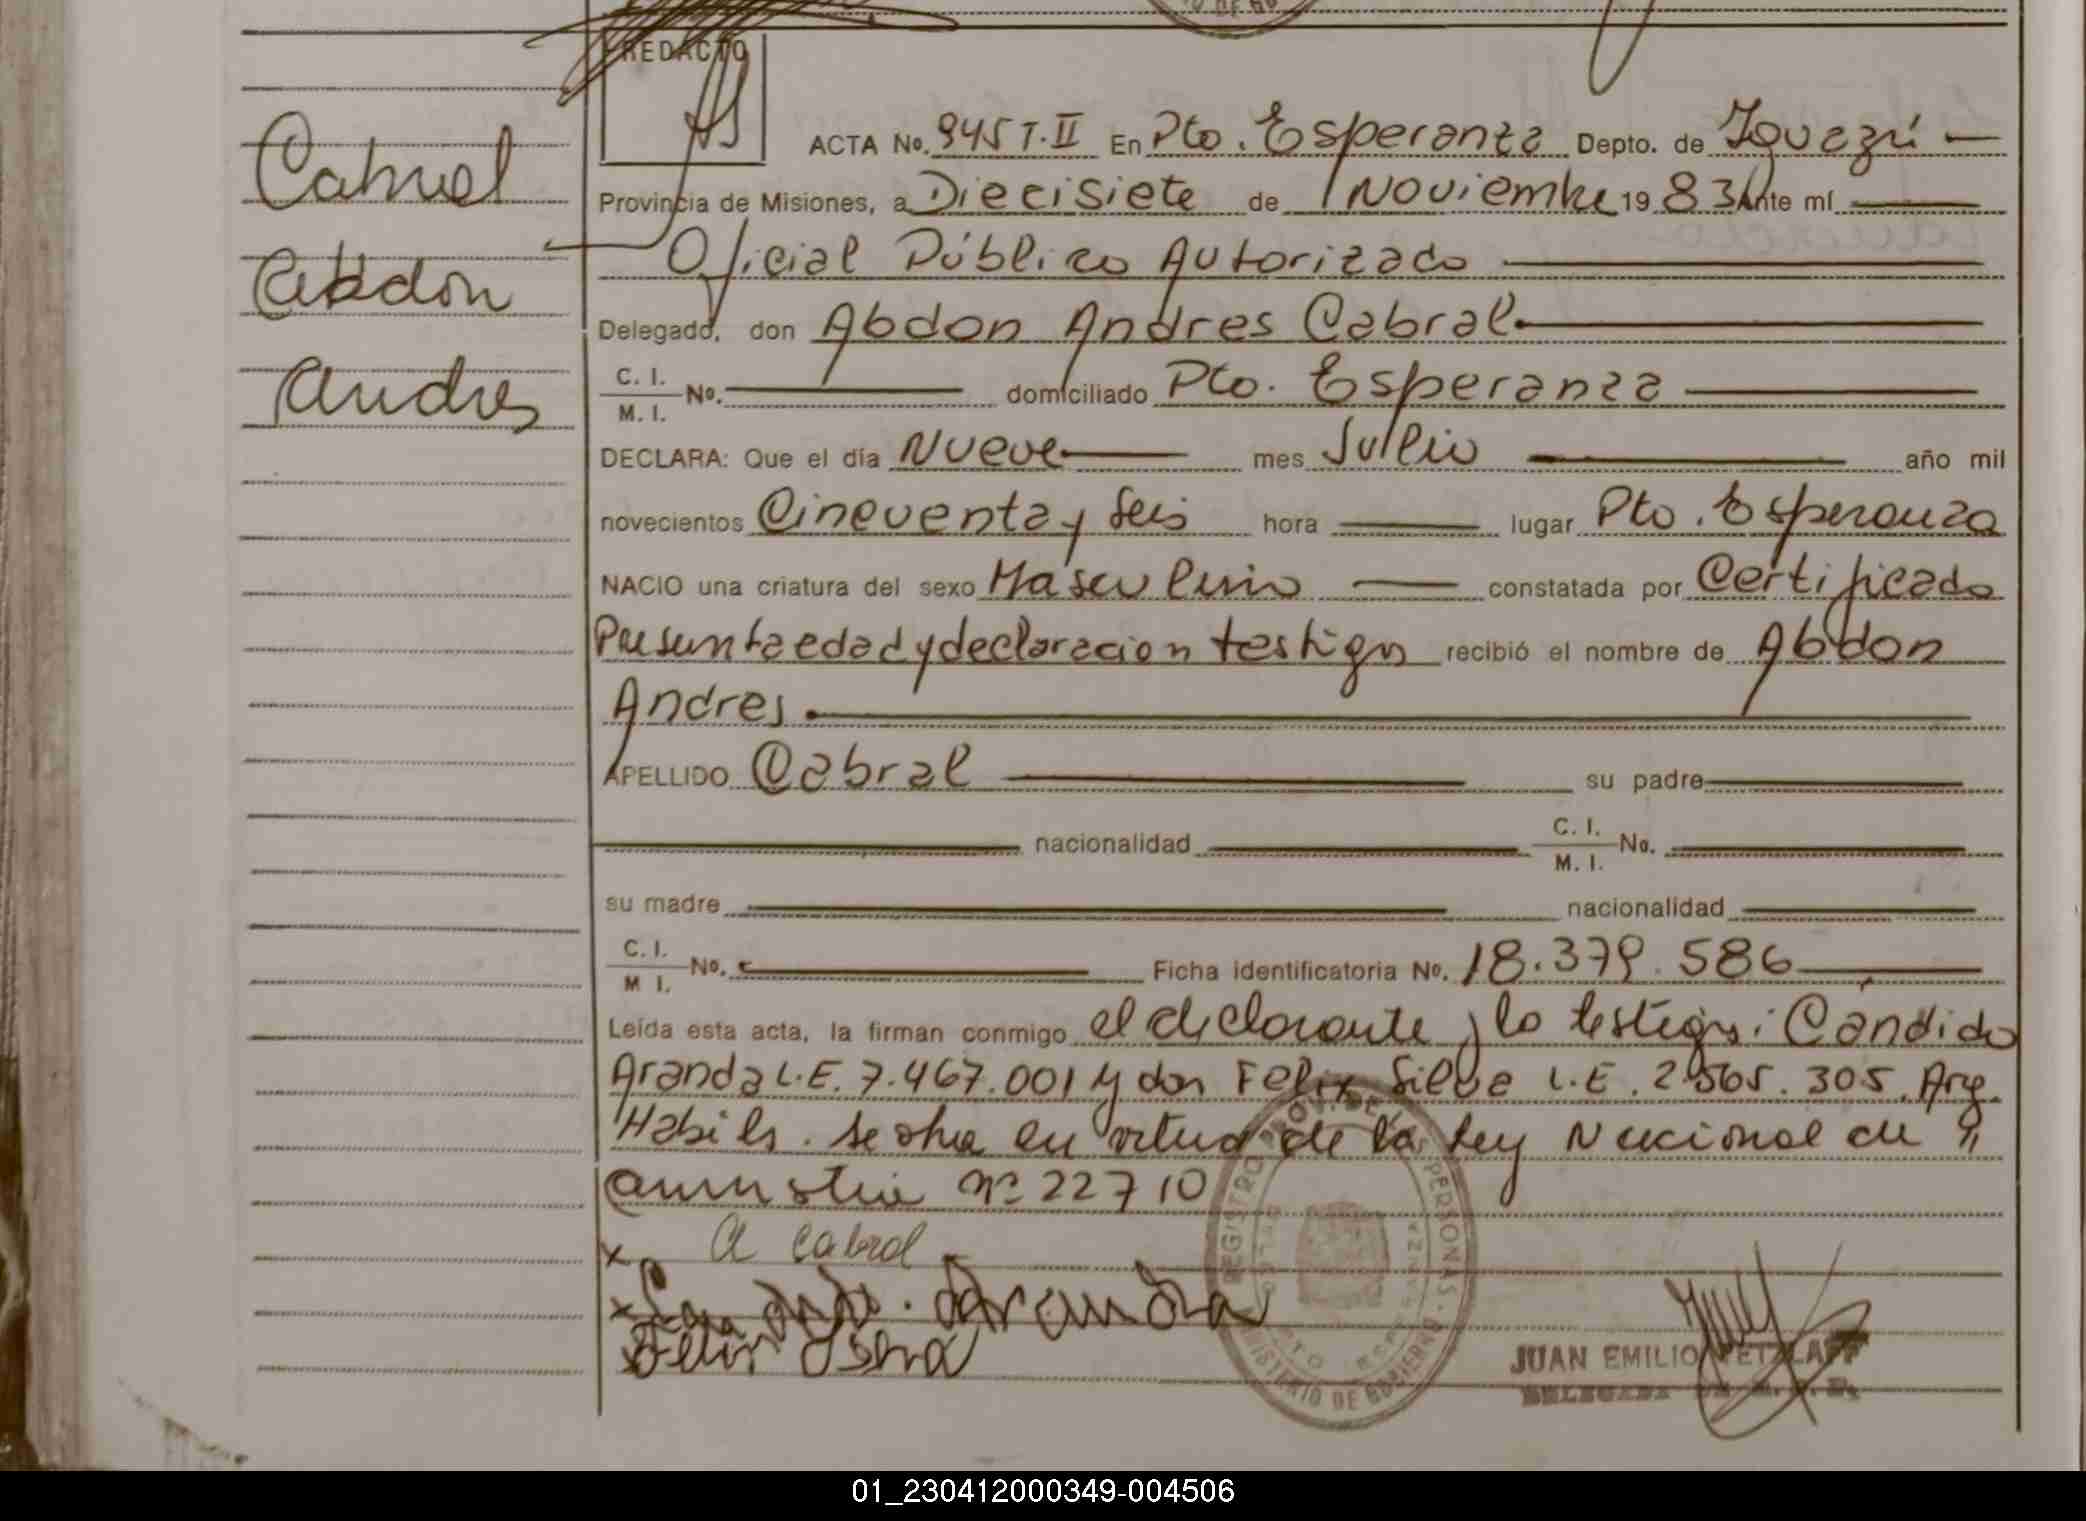 REDACTO
Cabral
Abdon
Andres
ACTA No. 945 T. II En Pto. Esperanza Depto. de Iguazú
Provincia de Misiones, a Diecisiete de Noviembre 19 83 Ante mí
Oficial Público Autorizado
Delegado, don Abdon Andres Cabral
C. I.
M. I. No. domiciliado Pto. Esperanza
DECLARA: Que el día Nueve mes Julio año mil
novecientos Cincuenta y Seis hora lugar Pto. Esperanza
NACIO una criatura del sexo Masculino constatada por Certificado
Presunta edad y declaracion testigos recibió el nombre de Abdon
Andres
APELLIDO Cabral su padre
nacionalidad C. I.
M. I. No.
su madre nacionalidad
C. I.
M I. No. Ficha identificatoria No. 18.379.586
Leída esta acta, la firman conmigo el declarante y lo testigos: Candido
Aranda L.E. 7.467.001 y don Felix Silva L.E. 2.565.305. Arg.
Habiles. Se labra en virtud de la Ley Nacional de
amnistia Nº 22710
x A Cabral
x Candido. Aranda
x Felix Silva
REGISTRO PROV. DE LAS PERSONAS. MINISTERIO DE GOBIERNO
PTO ESPERANZA
JUAN EMILIO TETZLAFF
01_230412000349-004506